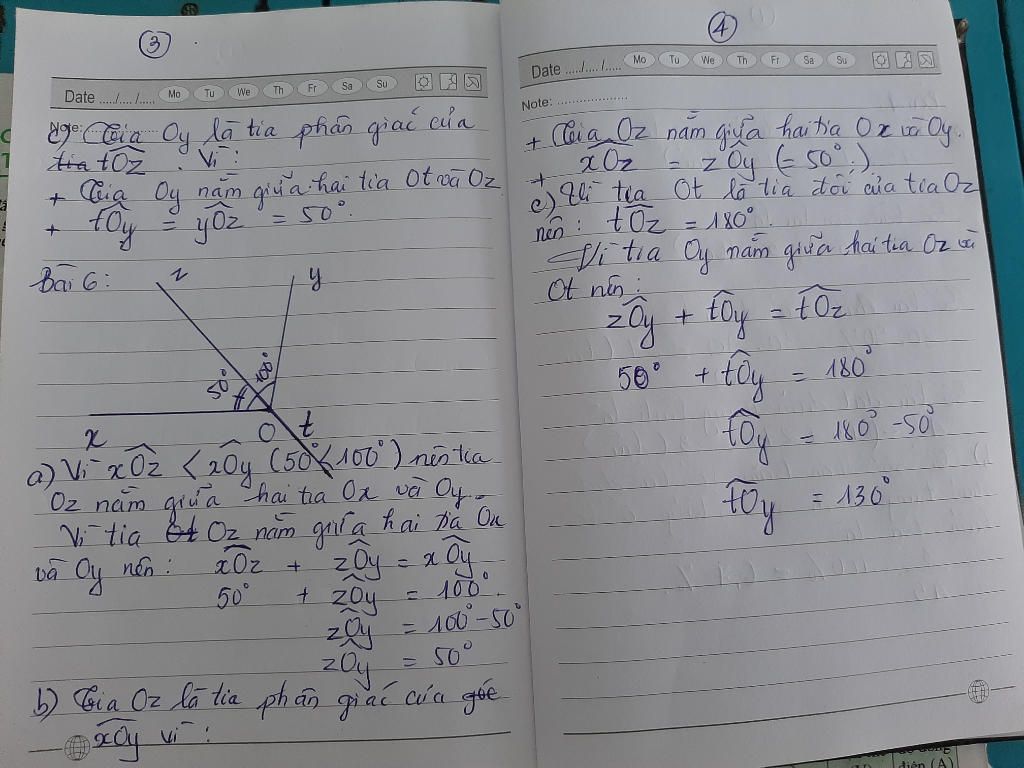 ③
Date ..../..../.... Mo Tu We Th Fr Sa Su
Note: ....................
c) Tia Oy là tia phân giác của
tia tOz. Vì:
+ Tia Oy nằm giữa hai tia Ot và Oz
+ tOy = yOz = 50°.
Bài 6:
z y
50° 100°
x O t
a) Vì xOz < xOy (50° < 100°) nên tia
Oz nằm giữa hai tia Ox và Oy.
Vì tia Ot Oz nằm giữa hai tia Ox
và Oy nên: xOz + zOy = xOy
50° + zOy = 100°.
zOy = 100° - 50°
zOy = 50°
b) Tia Oz là tia phân giác của góc
xOy vì:
④
Date ..../..../.... Mo Tu We Th Fr Sa Su
Note: ....................
+ Tia Oz nằm giữa hai tia Ox và Oy.
+ xOz = zOy (= 50°.)
c) Vì tia Ot là tia đối của tia Oz
nên: tOz = 180°.
Vì tia Oy nằm giữa hai tia Oz và
Ot nên:
zOy + tOy = tOz
50° + tOy = 180°
tOy = 180° - 50°
tOy = 130°
điện (A)